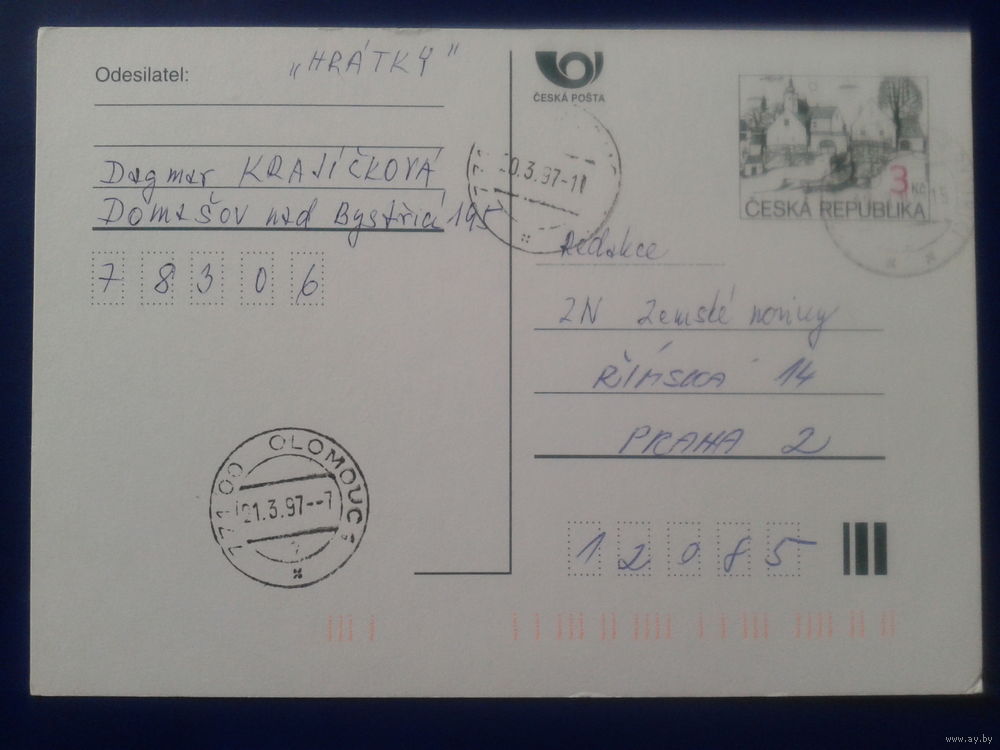 Odesilatel:
„HRÁTKY"
Dagmar KRAJÍČKOVÁ
DOMAŠOV nad Bystřicí 195
7 8 3 0 6
ČESKÁ POŠTA
0.3.97-11
3 Kč
ČESKÁ REPUBLIKA
Redakce
ZN Zemské noviny
ŘÍMSKÁ 14
PRAHA 2
1 2 0 8 5
771 00 OLOMOUC 1
21.3.97--7
www.ay.by